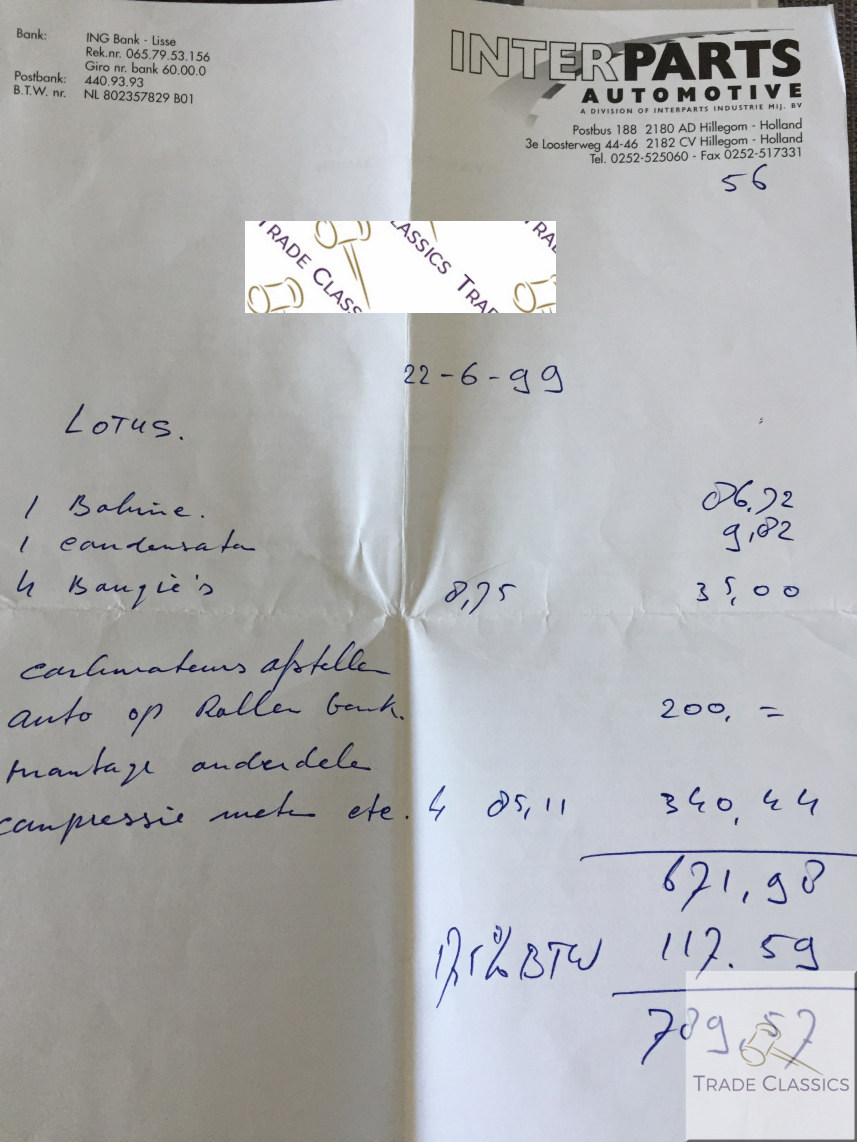 Bank: ING Bank - Lisse
Rek.nr. 065.79.53.156
Giro nr. bank 60.00.0
Postbank: 440.93.93
B.T.W. nr. NL 802357829 B01
INTERPARTS
AUTOMOTIVE
A DIVISION OF INTERPARTS INDUSTRIE MIJ. BV
Postbus 188 2180 AD Hillegom - Holland
3e Loosterweg 44-46 2182 CV Hillegom - Holland
Tel. 0252-525060 - Fax 0252-517331
56
TRADE CLASSICS TRADE
22-6-99
LOTUS.
1 Bobine. 86,72
1 condensator 9,82
4 Bougie's 8,75 35,00
carburateurs afstellen
auto op Rollen bank. 200, =
montage onderdelen
compressie meten etc. 4 85,11 340,44
671,98
17,5% BTW 117.59
789,57
TRADE CLASSICS